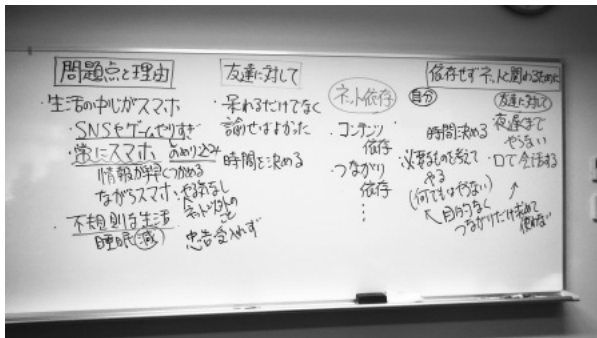 問題点と理由
・生活の中心がスマホ
・SNSやゲームやりすぎ
・常にスマホ のめり込み
情報が早くつかめる
ながらスマホ・やる気なし
ネット以外の
こと
・不規則な生活
睡眠減
忠告受入れず
友達に対して
・呆れるだけでなく
諭せばよかった
・時間を決める
ネット依存
・コンテンツ
依存
・つながり
依存
依存せずネットと関わるために
自分
時間決める
・必要なものを考えて
やる
(何でもはやらない)
↖目的なく
つながりだけ求めて
使わない
友達に対して
・夜遅くまで
やらない
・口で会話する